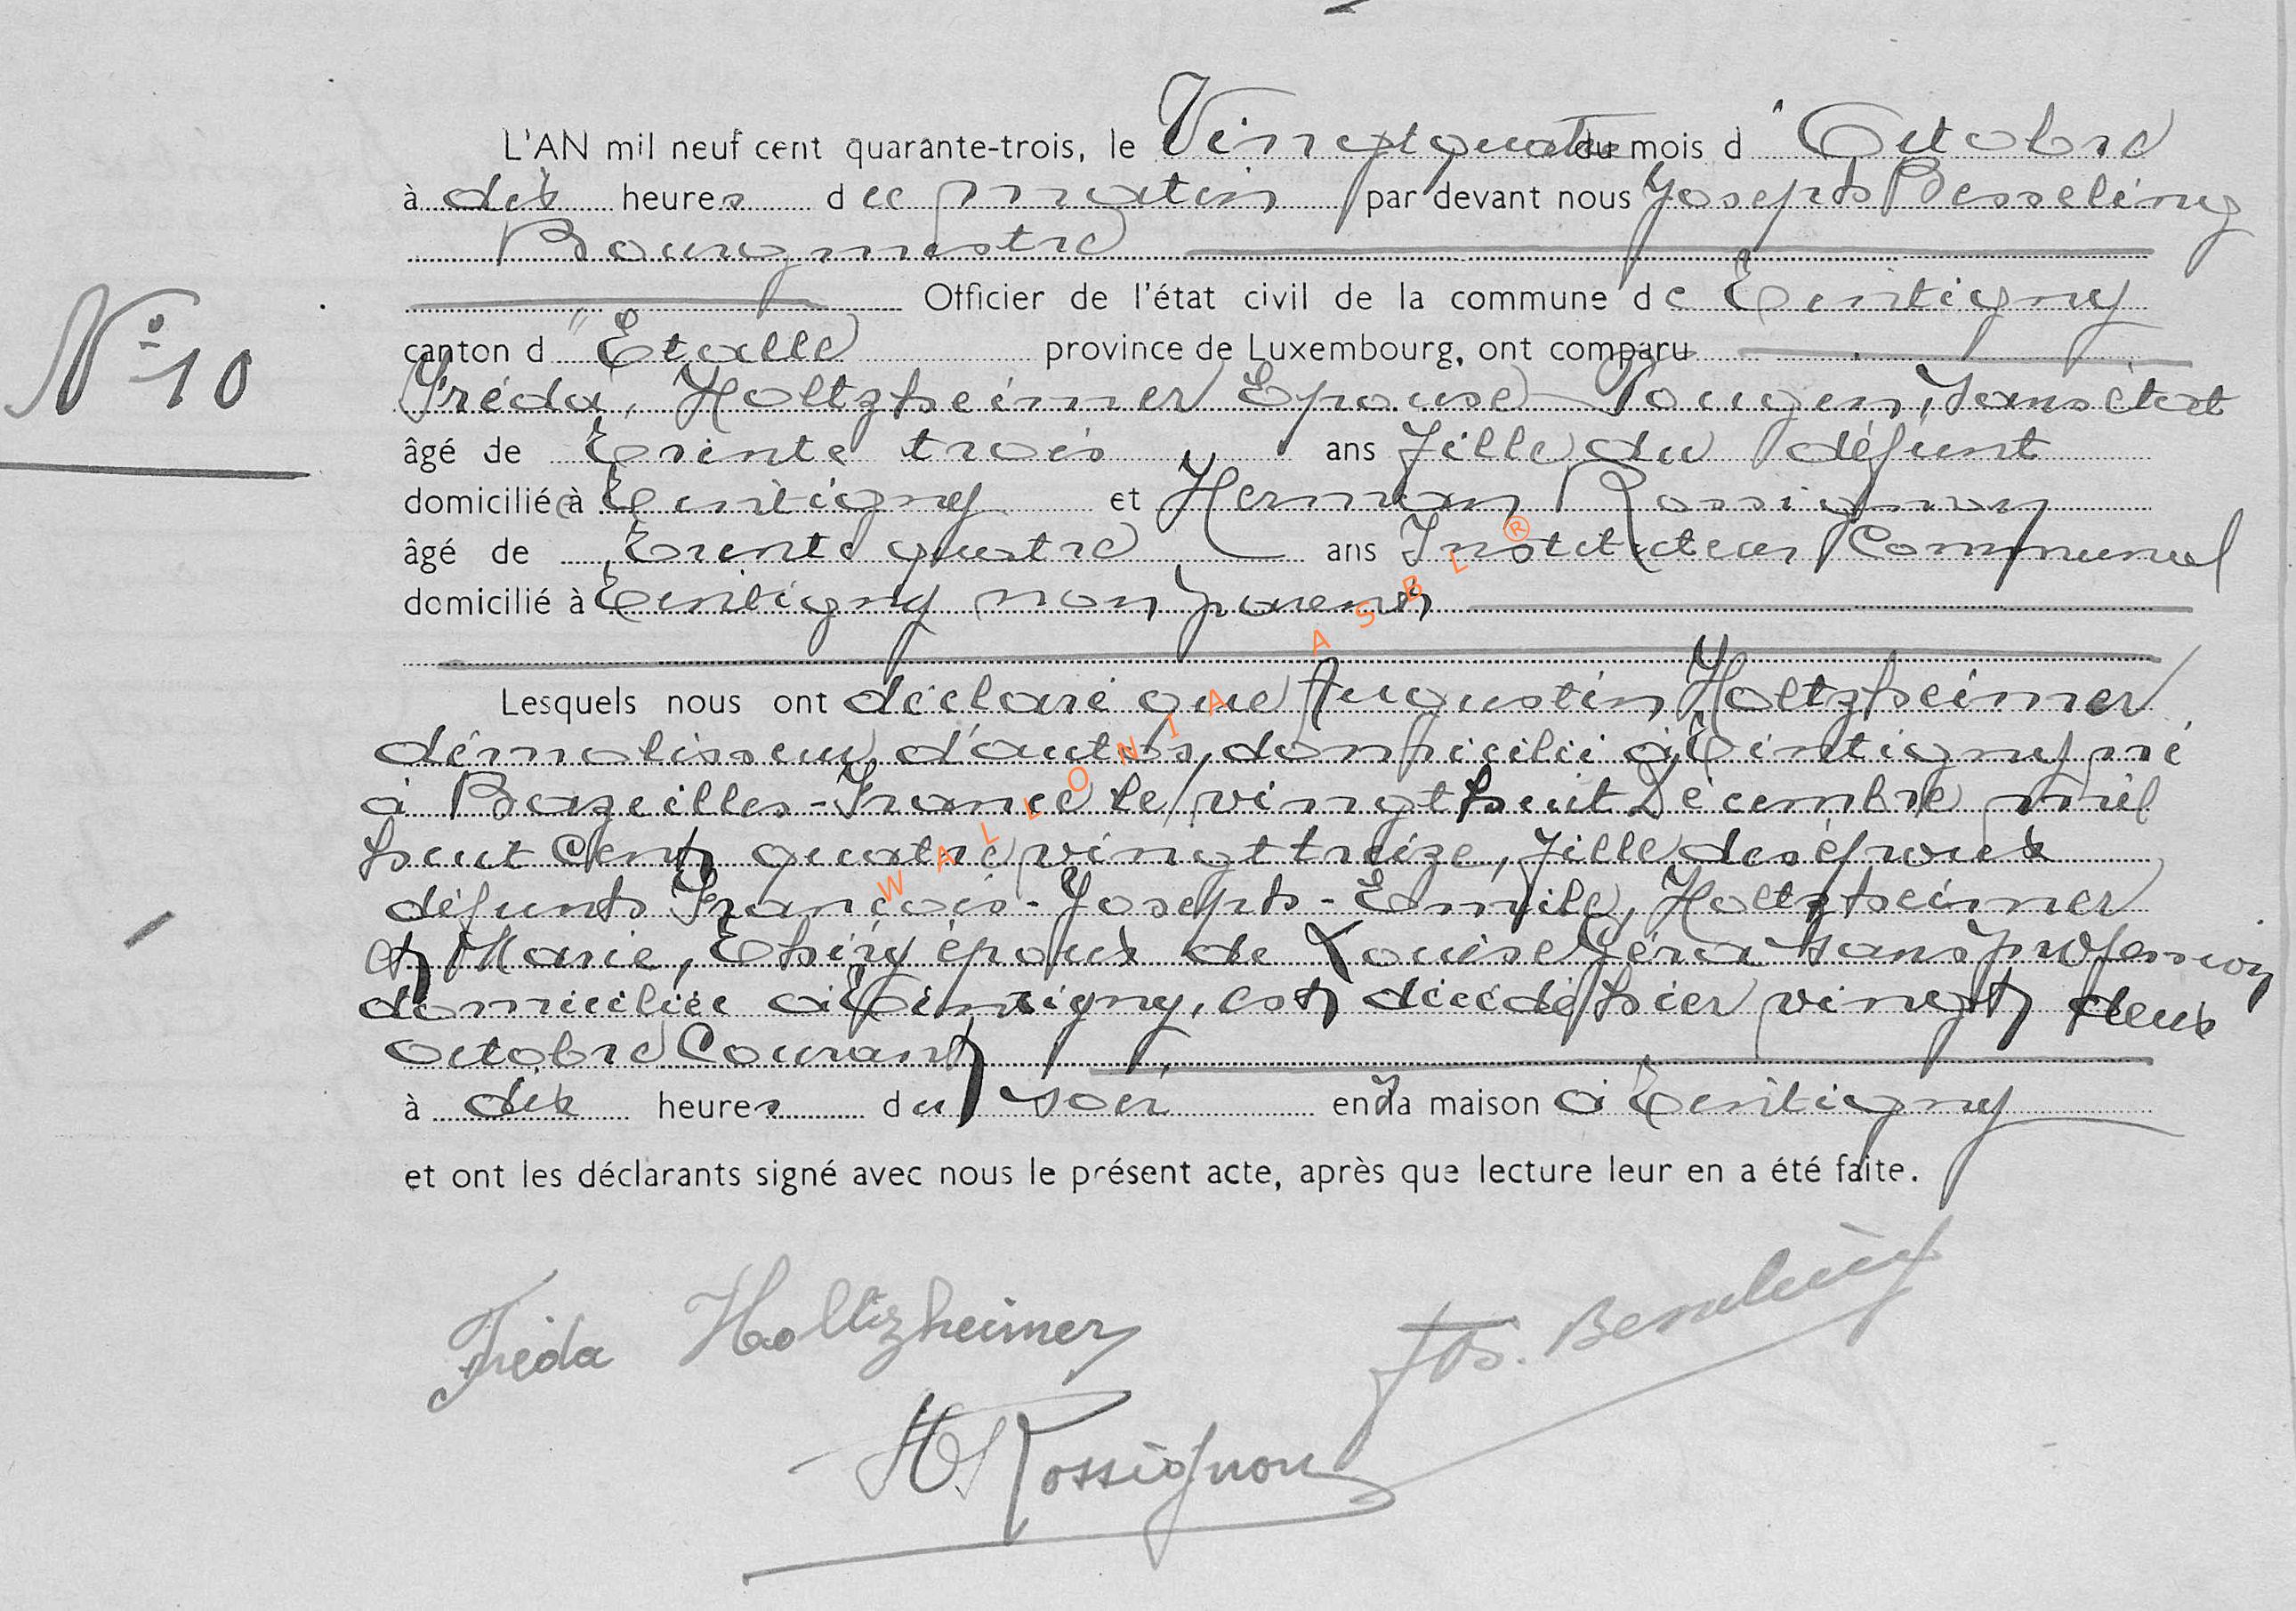 L'AN mil neuf cent quarante-trois, le Vingt quatre du mois d'Octobre
à dix heures du matin par devant nous Joseph Besseling
Bourgmestre
Officier de l'état civil de la commune de Tintigny
N° 10
canton d'Etalle province de Luxembourg, ont comparu
Fréda, Holtzheimer Epouse Pougen, sans état
âgé de Trente trois ans fille du défunt
domiciliée à Tintigny et Herman Rossignon
âgé de Trente quatre ans Instituteur Communal
domicilié à Tintigny non parent
Lesquels nous ont déclaré que Augustin Holtzheimer
démolisseur d'autos, domicilié à Tintigny, né
à Bazeilles-France le vingt huit Décembre mil
huit Cent quatre vingt treize, fille des époux
défunts François-Joseph-Emile, Holtzheimer
et Marie, Thiry époux de Louise Géra sans profession
domiciliée à Tintigny, est décédé hier vingt deux
octobre Courant
à dix heures du soir en sa maison à Tintigny
et ont les déclarants signé avec nous le présent acte, après que lecture leur en a été faite.
Fréda Holtzheimer Jos. Besseling
H Rossignon
WALLONIA ASBL ®